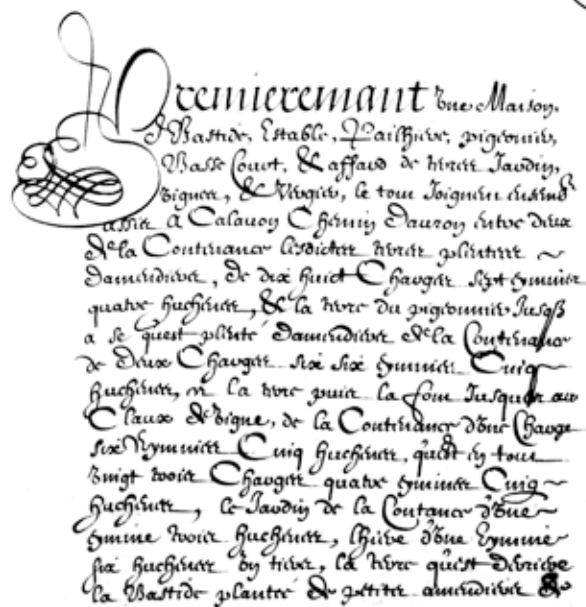 Premieremant vne Maison,
Bastide, Estable, Pailhiere, pigeonier,
Basse Court, & affard de terres Jardin,
Vignes, & Vergier, le tout Joignen ensemb
assis a Calauon Chemin Dauron entre deux
de la Contenance lesdictes terres plentees
damendiers, de dix huict Charges sept eymines
quatre huchenes, & la terre du pigeonnier Jusqs
a se quest plenté damendiers de la Contenance
de deux Charges six six eymines Cinq
huchenes, la terre puis la fon Jusques au
Claux de Vigne, de la Contenance d'vne Charge
six Eymines Cinq huchenes, quest en tout
vingt trois Charges quatre eymines Cinq
huchenes, le Jardin de la Contance d'vne
eymine trois huchenes, lhiere d'vne Eymine
six huchenes vn tiers, la terre qu'est derriere
la Bastide plantée de petites amendiers &